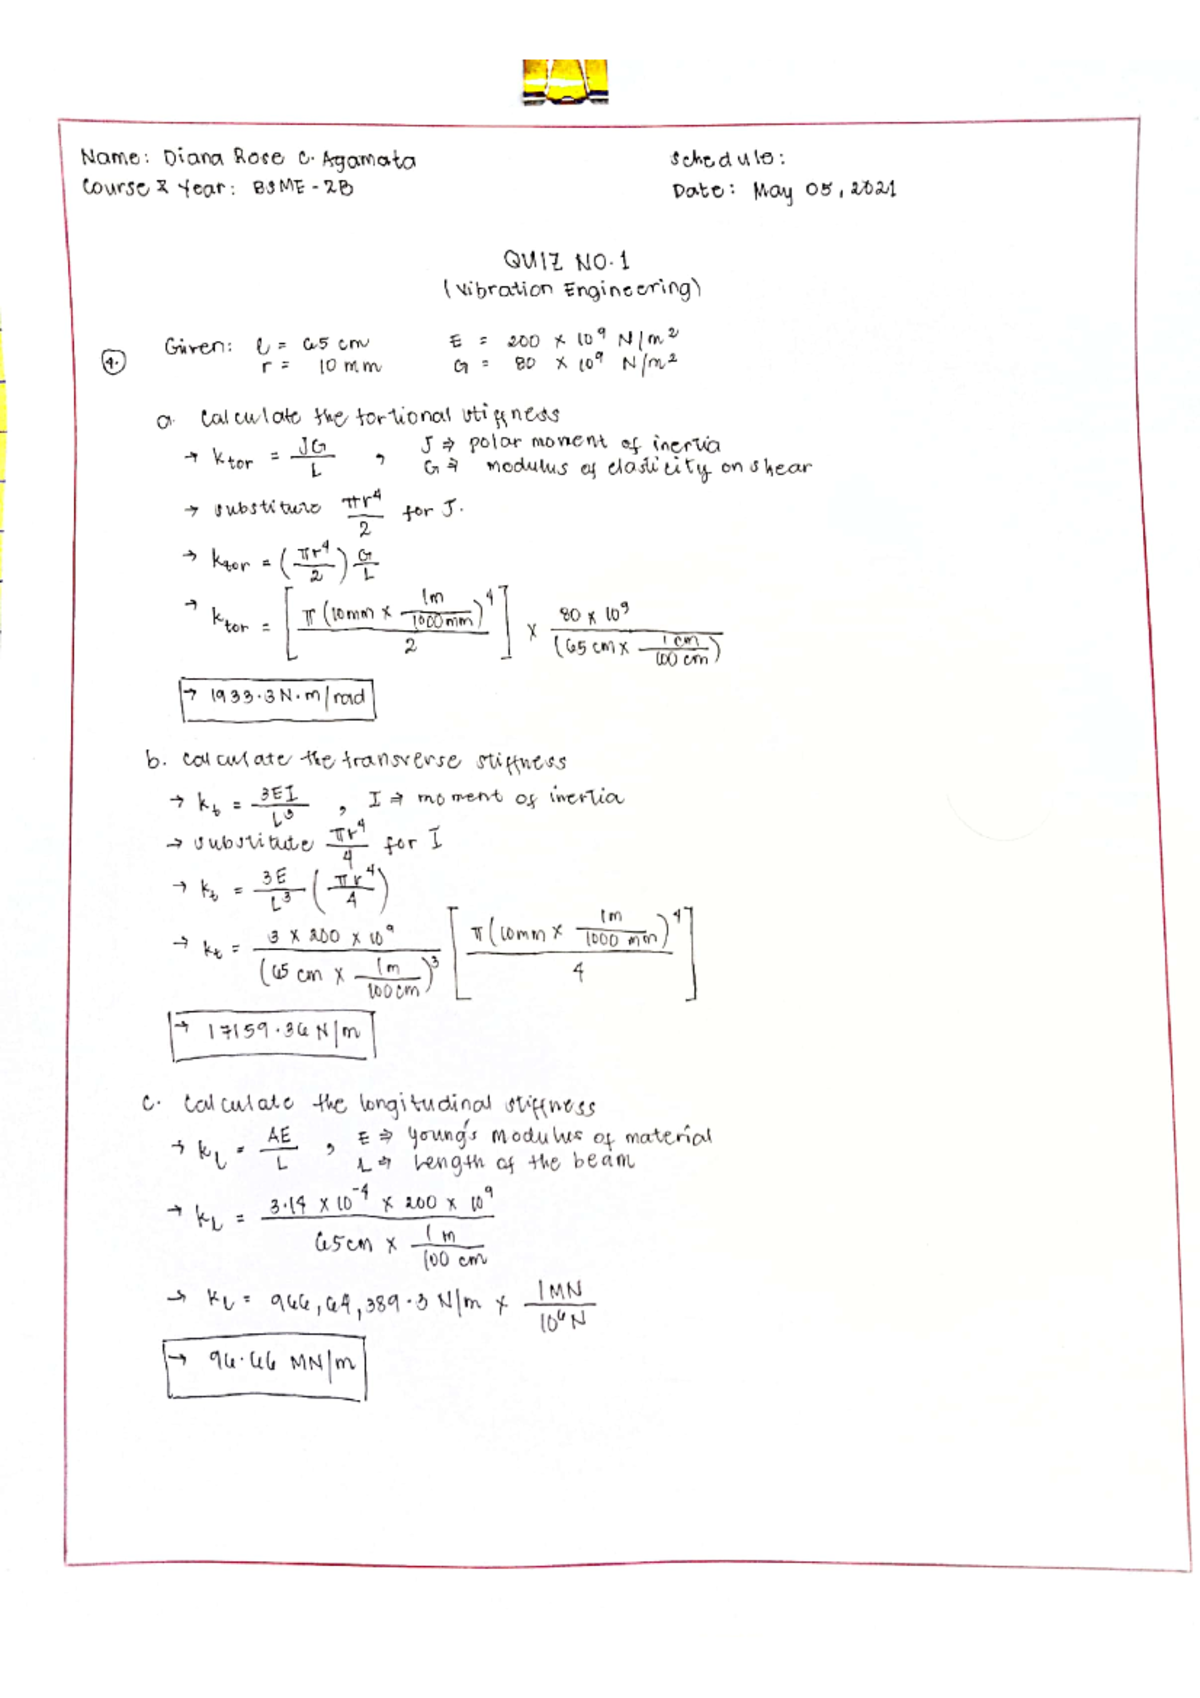 Name: Diana Rose C. Agamata
Schedule:
Course & Year: BSME - 2B
Date: May 05, 2021
QUIZ NO. 1
(Vibration Engineering)
4. Given: l = 65 cm E = 200 × 10⁹ N/m²
r = 10 mm G = 80 × 10⁹ N/m²
a. Calculate the torsional stiffness
→ k_tor = JG/L , J ⇒ polar moment of inertia
G ⇒ modulus of elasticity on shear
→ substitute πr⁴/2 for J.
→ k_tor = (πr⁴/2) G/L
→ k_tor = [π(10mm × 1m/1000mm)⁴ / 2] × 80 × 10⁹ / (65 cm × 1 cm/100 cm)
→ 1933.3 N·m/rad
b. Calculate the transverse stiffness
→ k_t = 3EI/L³ , I ⇒ moment of inertia
→ substitute πr⁴/4 for I
→ k_t = 3E/L³ (πr⁴/4)
→ k_t = 3 × 200 × 10⁹ / (65 cm × 1m/100cm)³ [π(10mm × 1m/1000 mm)⁴ / 4]
→ 17159.36 N/m
c. Calculate the longitudinal stiffness
→ k_L = AE/L , E ⇒ Young's Modulus of material
L ⇒ Length of the beam
→ k_L = 3.14 × 10⁻⁴ × 200 × 10⁹ / 65cm × 1 m/100 cm
→ k_L = 966,64,389.3 N/m × 1MN/10⁶N
→ 96.66 MN/m